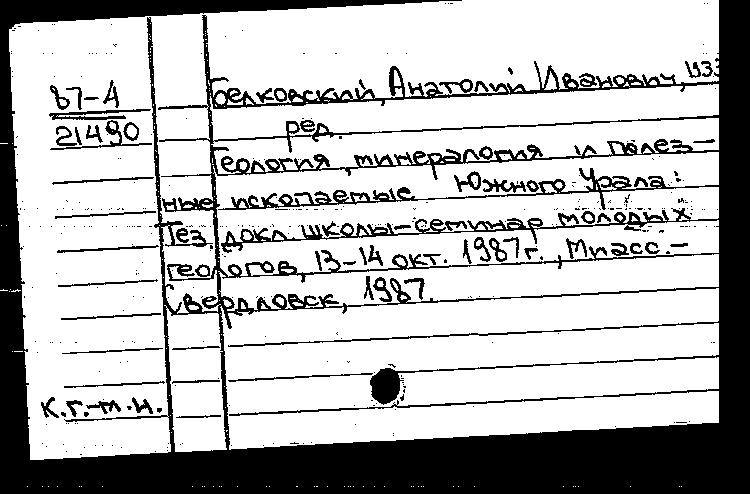 87-4
21490
Белковский, Анатолий Иванович, 1933
ред.
Геология, минералогия и полез-
ные ископаемые Южного Урала:
Тез. докл. школы-семинар молодых
геологов, 13-14 окт. 1987г., Миасс.-
Свердловск, 1987.
к.г.-м.н.